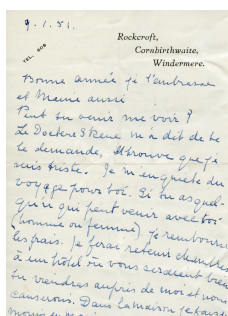 9.1.51.
TEL. 608
Rockcroft,
Cornbirthwaite,
Windermere.
Bonne année je t'embrasse
et Meme aussi
Peut tu venir me voir ?
Le Docteur Skene m'a dit de te
le demande, il trouve que je
suis triste. Je m'enquete du
voyage pour toi. Si tu as quel-
qu'un qui peut venir avec toi
(homme ou femme) je rembourse
les frais. Je ferai retenir chambres
à un hotel où vous seraient bien
tu viendras auprès de moi et nous
causerons. Dans la maison je
mourir en